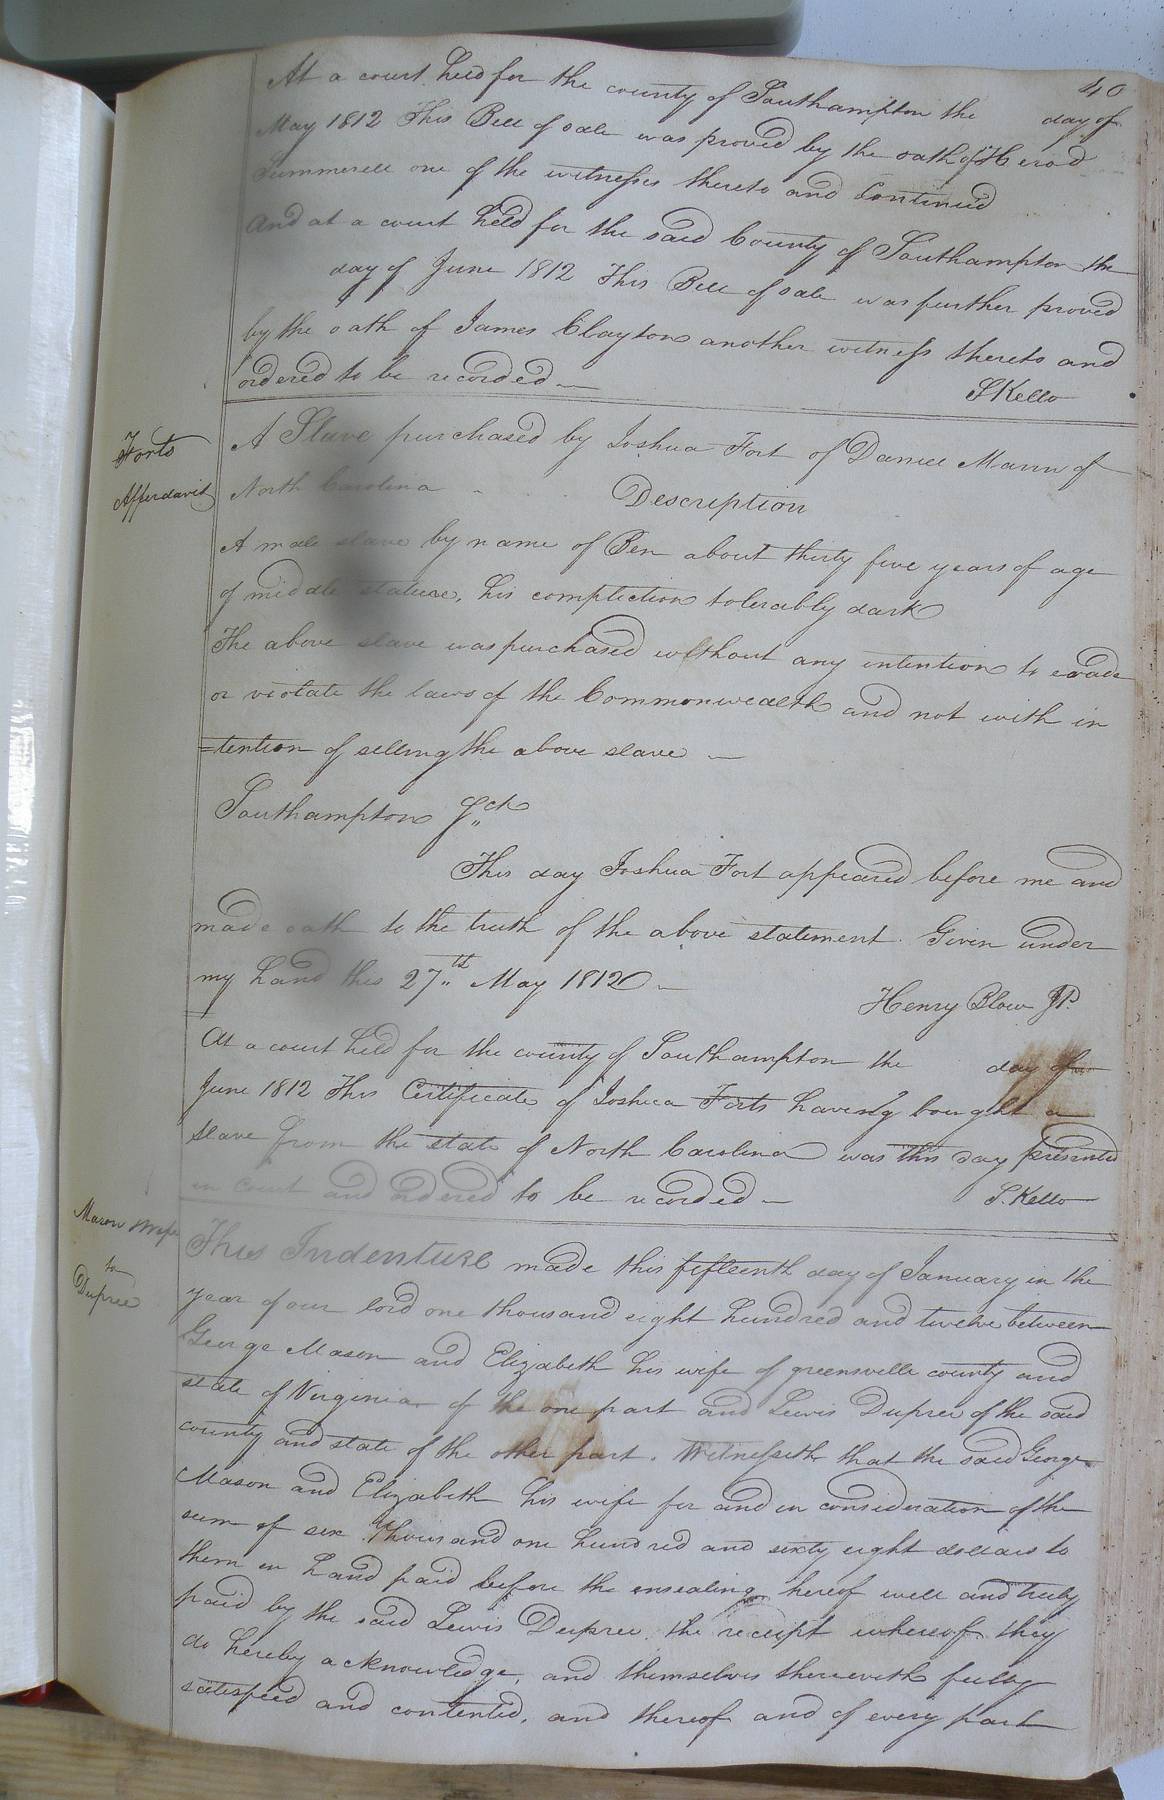 40
At a court held for the county of Southampton the day of
May 1812 This Bill of sale was proved by the oath of Herod
Summerell one of the witnesses thereto and Continued
And at a court held for the said County of Southampton the
day of June 1812 This Bill of sale was further proved
by the oath of James Clayton another witness thereto and
ordered to be recorded —
S Kello
Forts
Afferdavid
A Slave purchased by Joshua Fort of Daniel Mann of
North Carolina
Description
A male slave by name of Ben about thirty five years of age
of middle stature, his complection tolerably dark
The above slave was purchased without any intention to evade
or violate the laws of the Commonwealth and not with in
=tention of selling the above slave —
Southampton
This day Joshua Fort appeared before me and
made oath to the truth of the above statement. Given under
my hand this 27th May 1812 —
Henry Blow JP.
At a court held for the county of Southampton the day of
June 1812 This Certificate of Joshua Forts having bought a
slave from the state of North Carolina was this day presented
in court and ordered to be recorded —
S. Kello
Mason &
to
Dupree
This Indenture made this fifteenth day of January in the
year of our lord one thousand eight hundred and twelve between
George Mason and Elizabeth his wife of greensville county and
state of Virginia of the one part and Lewis Dupree of the said
county and state of the other part. Witnesseth that the said George
Mason and Elizabeth his wife for and in consideration of the
sum of six thousand one hundred and sixty eight dollars to
them in hand paid before the ensealing hereof well and truly
paid by the said Lewis Dupree, the receipt whereof they
do hereby acknowledge, and themselves therewith fully
satisfied and contented, and thereof and of every part